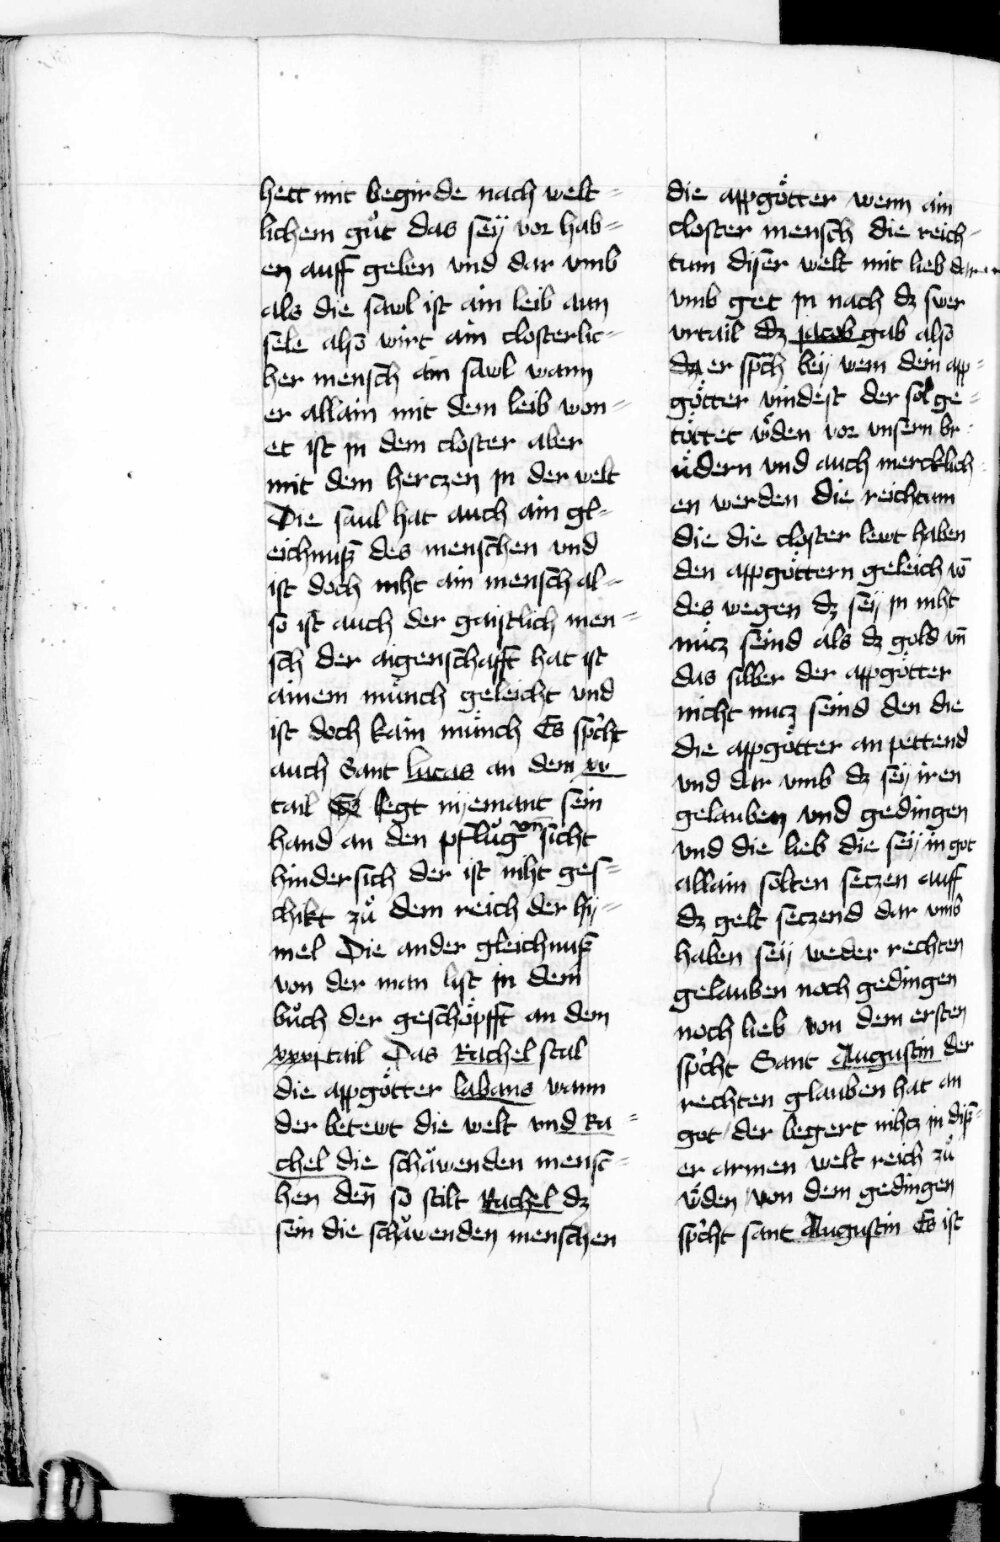 hett mit begirde nach welt=
lichem gůt das seÿ vor hab=
en auff geben vnd dar vmb
als die sawl ist ain leib aun
sele also wirt ain closterlic=
her mensch ain sawl wann
er allain mit dem leib won=
et ist in dem closter aber
mit dem herczen in der welt
Die saul hat auch ain gl=
eichnuß des menschen vnd
ist doch niht ain mensch al=
so ist auch der gaistlich men=
sch der aigenschafft hat ist
ainem mu̎nch geleicht vnd
ist doch kain mu̎nch Es spͥcht
auch Sant lucas an dem xv
tail Es legt nÿemant sein
hand an den pflůg vn̄ sicht
hindersich der ist niht ges=
chikt zů dem reich der hÿ=
mel Die ander gleichnuß
von der man list in dem
bůch der geschöpfft an dem
xxxj tail Das Rachel stal
die appgötter labans wann
der betewt die welt vnd Ra=
chel die schäwenden mensc=
hen den̄ so stilt Rachel dz
sein die schäwenden menschen
die appgötter wenn ain
closter mensch die reich=
tum diser welt mit lieb dar
vmb get in nach dz swer
vrtail dz jacob gab also
dz er spͥch beÿ wem dein app=
götter vindest der sol ge=
töttet w̎den vor vnsern br=
üdern vnd auch mercklich=
en werden die reichtum
die die closter lewt haben
den appgöttern geleich vō
des wegen dz seÿ in niht
nücz seind als dz gold vn̄
das silber der appgötter
nicht nucz seind den die
die appgötter an pettend
vnd dar vmb dz seÿ iren
gelauben vnd gedingen
vnd die lieb die seÿ in got
allain solten seczen auff
dz gelt seczend dar vmb
haben seÿ weder rechten
gelauben noch gedingen
noch lieb von dem ersten
spͥcht Sant Augustin der
rechten glauben hat an
got der begert nihcz in diß=
er armen welt reich zů
w̎den von dem gedingen
spͥcht sant Augustin Es ist